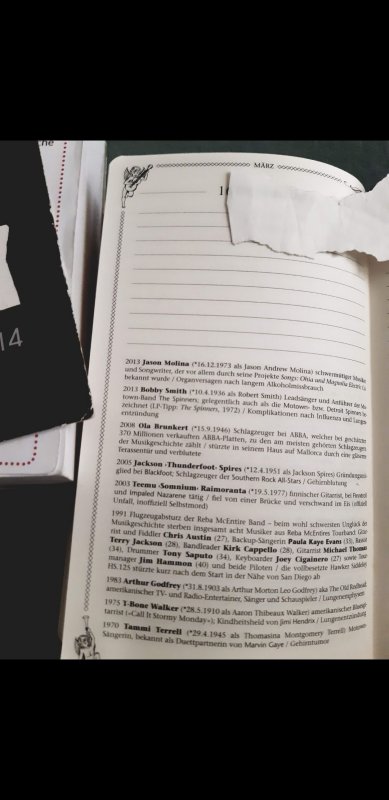 che
14
MÄRZ
2013 Jason Molina (*16.12.1973 als Jason Andrew Molina) schwermütiger
und Songwriter, der vor allem durch seine Projekte Songs: Ohia und Magnolia Electric
bekannt wurde / Organversagen nach langem Alkoholmissbrauch
2013 Bobby Smith (*10.4.1936 als Robert Smith) Leadsänger und Anführer der
town-Band The Spinners; gelegentlich auch als die Motown- bzw. Detroit Spinners
zeichnet (LP-Tipp: The Spinners, 1972) / Komplikationen nach Influenza und Lungen-
entzündung
2008 Ola Brunkert (*15.9.1946) Schlagzeuger bei ABBA, welcher bei geschätzt
370 Millionen verkauften ABBA-Platten, zu den am meisten gehörten Schlagzeugern
der Musikgeschichte zählt / stürzte in seinem Haus auf Mallorca durch eine gläserne
Terassentür und verblutete
2005 Jackson ›Thunderfoot‹ Spires (*12.4.1951 als Jackson Spires) Gründungsmit-
glied bei Blackfoot; Schlagzeuger der Southern Rock All-Stars / Gehirnblutung
2003 Teemu ›Somnium‹ Raimoranta (*19.5.1977) finnischer Gitarrist, bei Finntroll
und Impaled Nazarene tätig / fiel von einer Brücke und verschwand im Eis (offiziell
Unfall, inoffiziell Selbstmord)
1991 Flugzeugabsturz der Reba McEntire Band – beim wohl schwersten Unglück der
Musikgeschichte sterben insgesamt acht Musiker aus Reba McEntires Tourband: Gitar-
rist und Fiddler Chris Austin (27), Backup-Sängerin Paula Kaye Evans (33), Bassist
Terry Jackson (28), Bandleader Kirk Cappello (28), Gitarrist Michael Thomas
(34), Drummer Tony Saputo (34), Keyboarder Joey Cigainero (27) sowie Tour-
manager Jim Hammon (40) und beide Piloten / die vollbesetzte Hawker Siddeley
HS.125 stürzte kurz nach dem Start in der Nähe von San Diego ab
1983 Arthur Godfrey (*31.8.1903 als Arthur Morton Leo Godfrey) aka The Old Redhead,
amerikanischer TV- und Radio-Entertainer, Sänger und Schauspieler / Lungenemphysem
1975 T-Bone Walker (*28.5.1910 als Aaron Thibeaux Walker) amerikanischer Bluesgi-
tarrist (»Call It Stormy Monday«); Kindheitsheld von Jimi Hendrix / Lungenentzündung
1970 Tammi Terrell (*29.4.1945 als Thomasina Montgomery Terrell) Motown-
Sängerin, bekannt als Duettpartnerin von Marvin Gaye / Gehirntumor